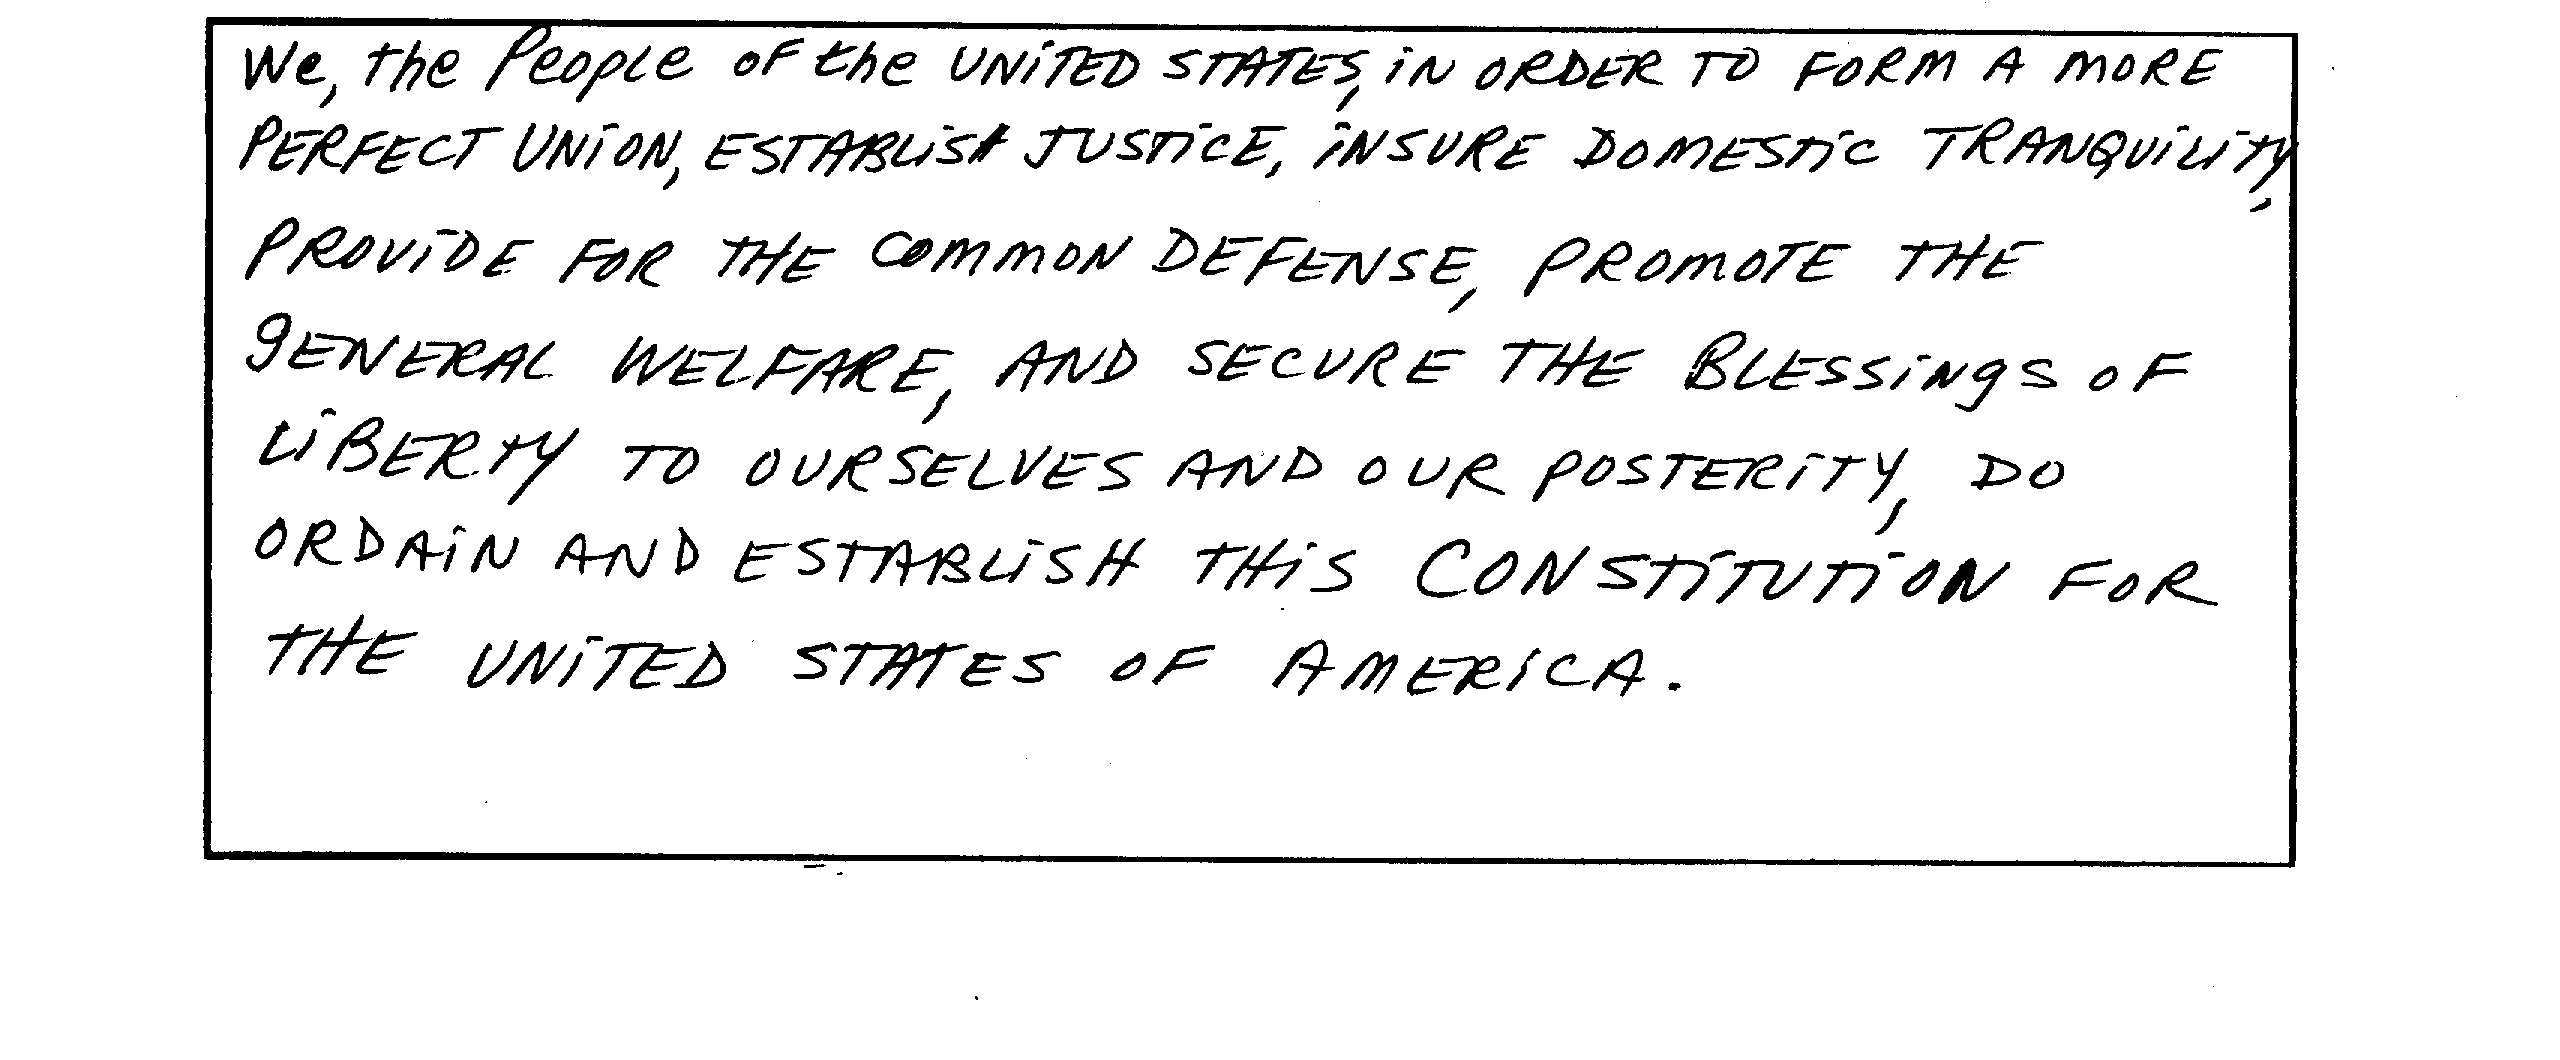 We, the People of the UNiTED STATES, iN ORDER TO FORM A MORE
PERFECT UNiON, ESTABLiSH JUSTiCE, iNSURE DOMESTiC TRANQUiLiTY,
PROViDE FOR THE COMMON DEFENSE, PROMOTE THE
gENERAL WELFARE, AND SECURE THE BLESSiNgS OF
LiBERTY TO OURSELVES AND OUR POSTERiTY, DO
ORDAiN AND ESTABLiSH THiS CONSTiTUTiON FOR
THE UNiTED STATES OF AMERiCA.